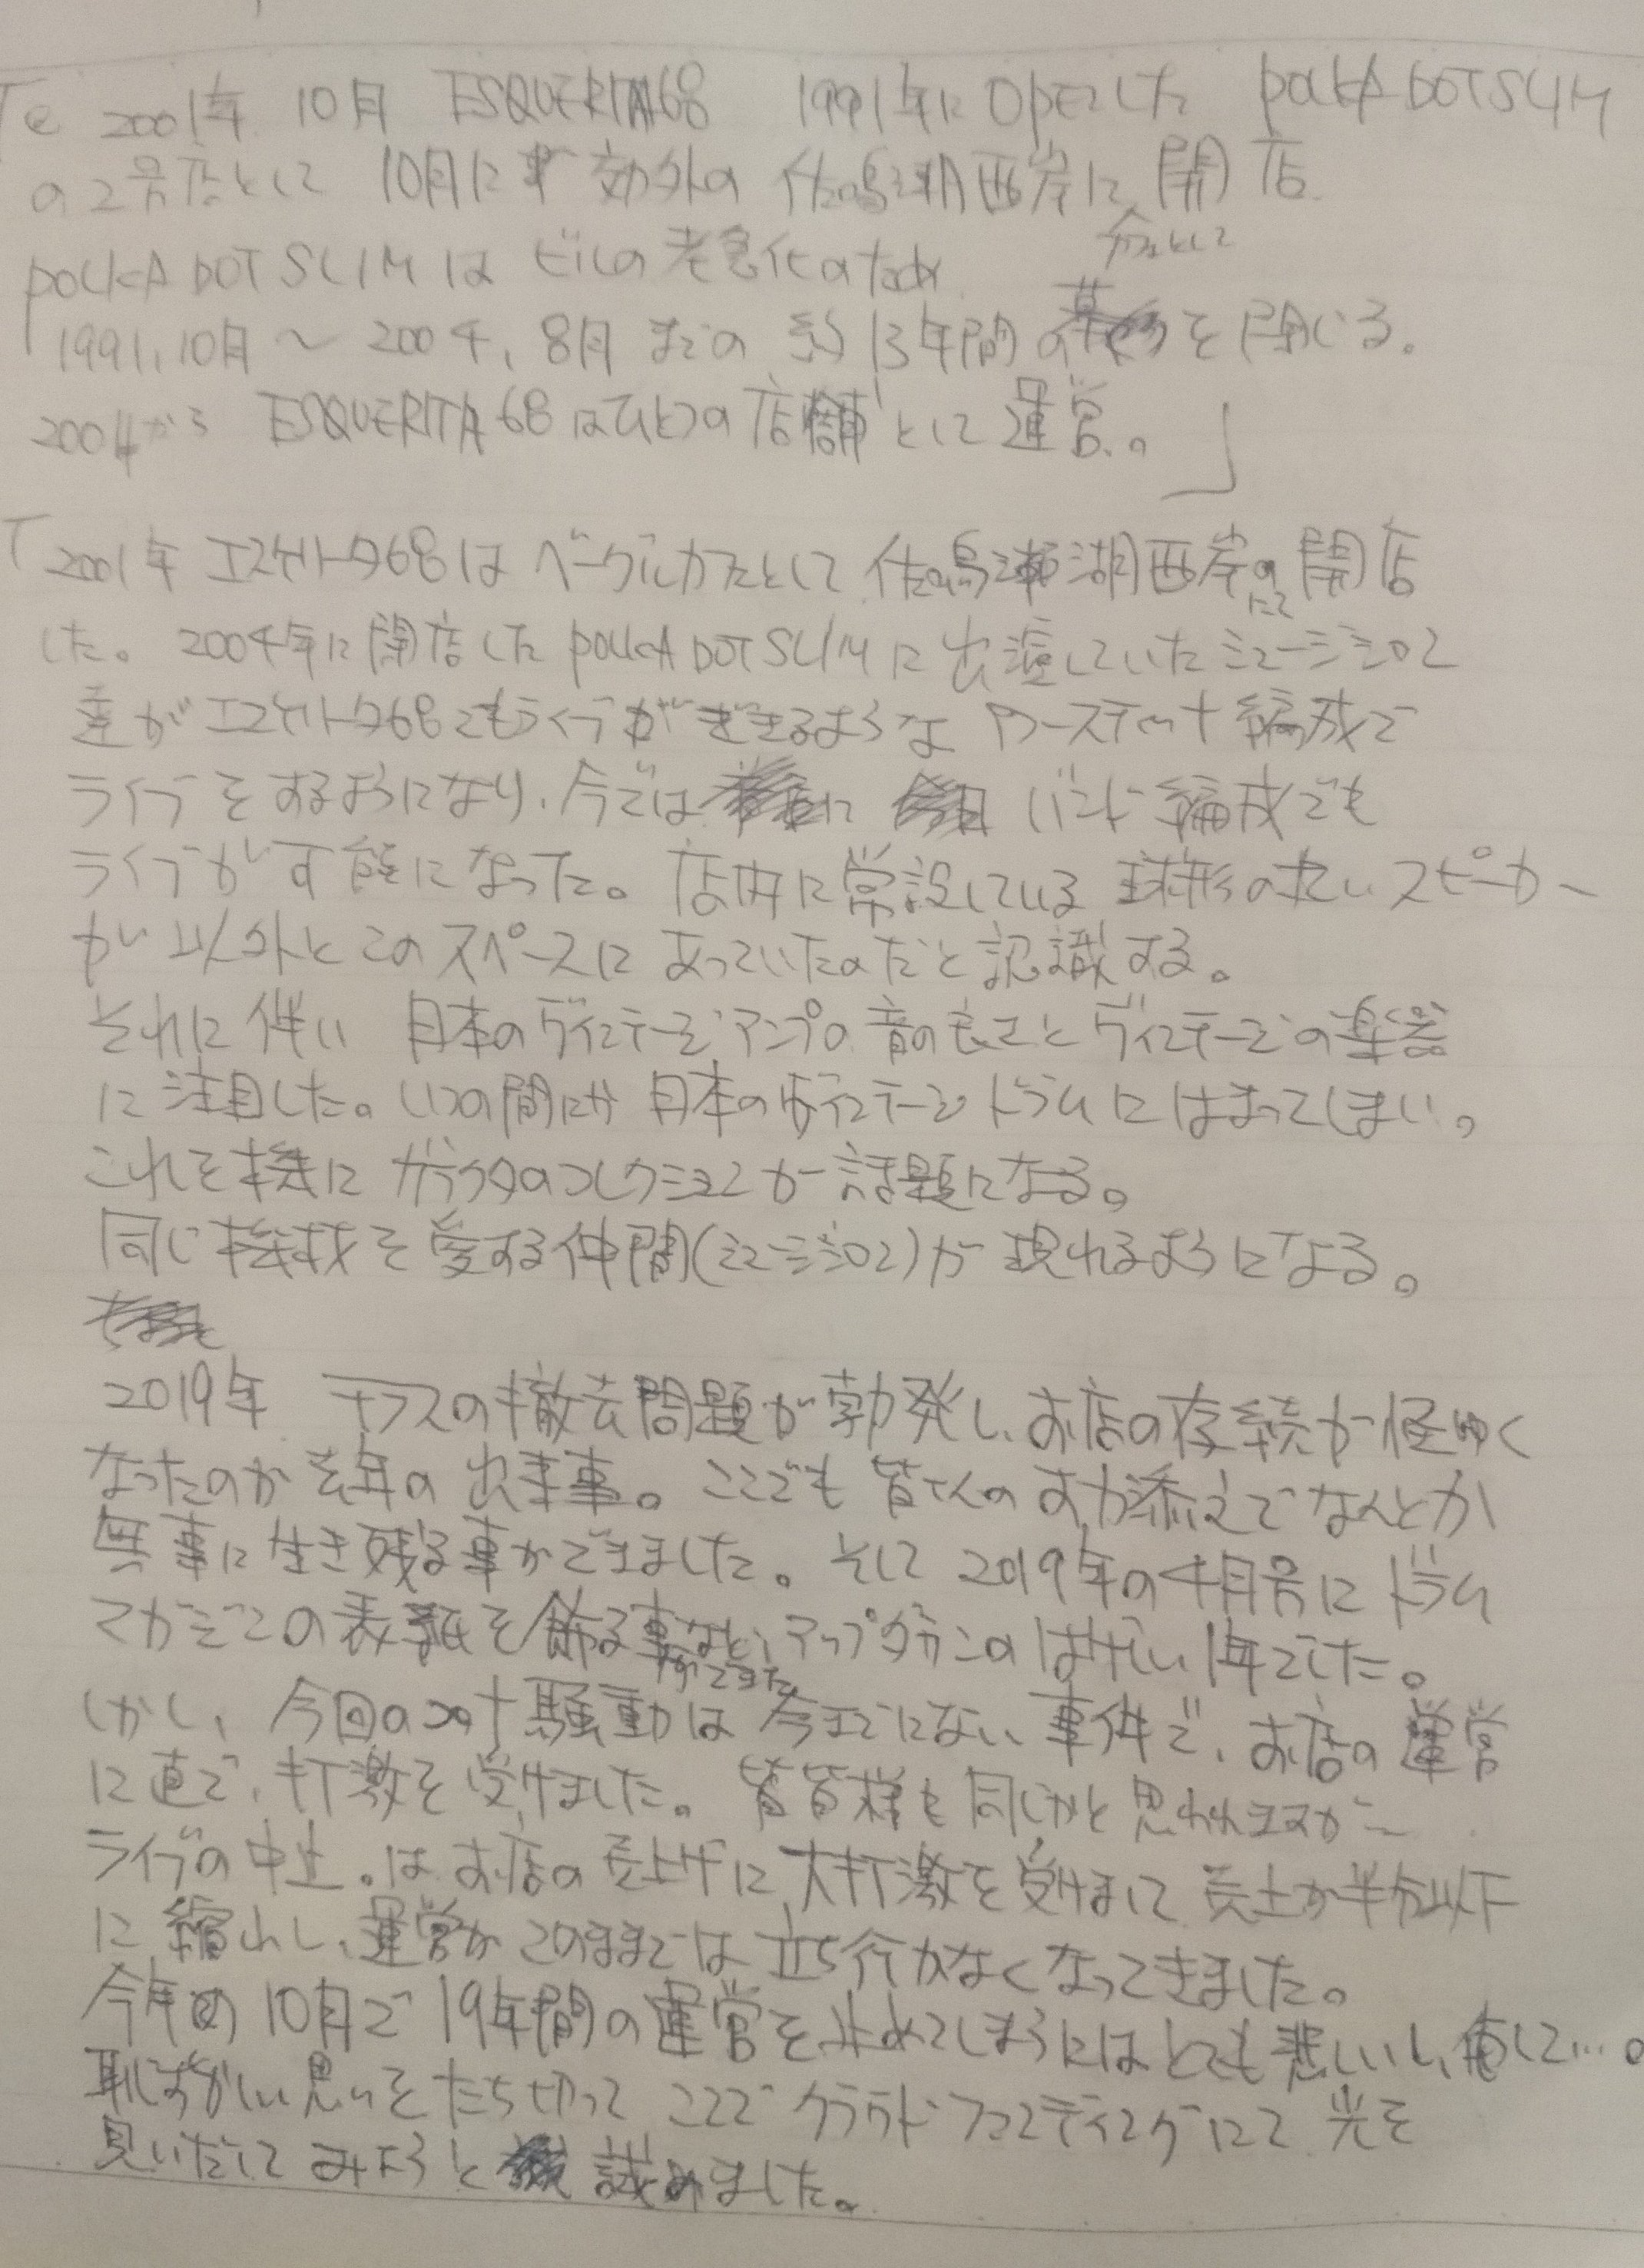 2001年 10月 ESQUERITA68 1991年にOpenした POLKA DOT SLIM
の2号店として 10月に 郊外の 佐鳴湖西岸に 開店
POLKA DOT SLIM は ビルの 老急化のため
1991,10月 〜 2004, 8月 までの 約 13年間の 幕を閉じる。
2004から ESQUERITA 68 はひとつの 店舗 として 運営。」
2001年 エスケリータ68は ベーグルカフェとして 佐鳴湖西岸に 開店
した。 2004年に 閉店した POLKA DOT SLIM に 出演していたミュージシャン
達が エスケリータ68でもライブができるような アコースティック編成で
ライブをするようになり、今では バンド編成でも
ライブが可能になった。店内に常設している 球形の丸いスピーカー
が 以外とこのスペースに あっていたのだと認識する。
それに伴い 日本のヴィンテージアンプの音の良さと ヴィンテージの楽器
に注目した。いつの間にか 日本のヴィンテージドラムにはまってしまい。
これを機に ガラクタのコレクションが話題になる。
同じ機材を愛する仲間(ミュージシャン)が 現れるようになる。
2019年 テラスの撤去問題が勃発し、お店の存続が怪ゆく
なったのが去年の出来事。ここでも 皆さんのお力添えでなんとか
無事に生き残る事ができました。そして 2019年の4月号にドラム
マガジンの表紙を飾る事ができた アップダウンのはげしい1年でした。
しかし、今回のコロナ騒動は 今までにない 事件で、お店の運営
に直で、打激を受けました。皆皆様も同じかと思われますがー
ライブの中止。は お店の売上げに 大打激を受けまして 売上が半分以下
に縮小し、運営がこのままでは立ち行かなくなってきました。
今年の10月で 19年間の運営を止めてしまうにはとても悲しいし、悔して…。
恥しずかしい思いをたち切って ここで クラウドファンディングにて 光を
見いだしてみようと 試みました。